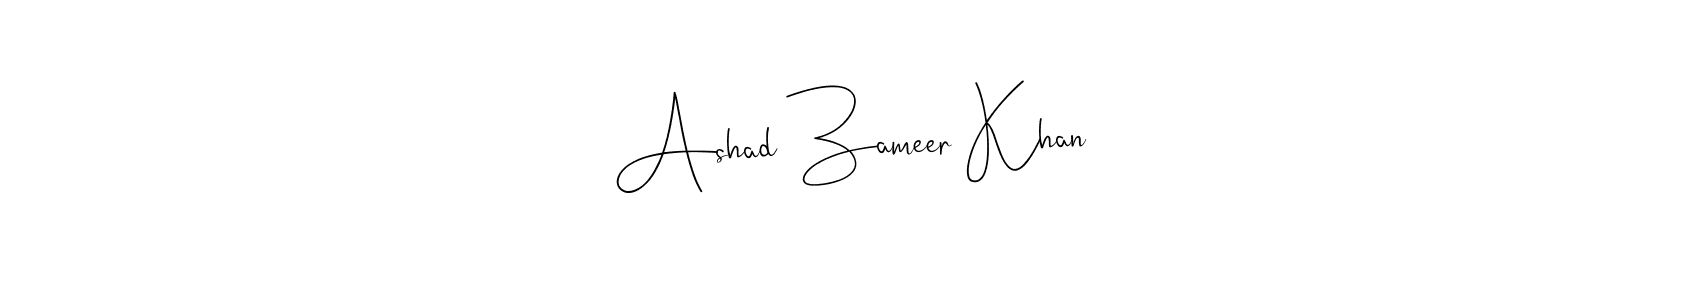 Ashad Zameer Khan